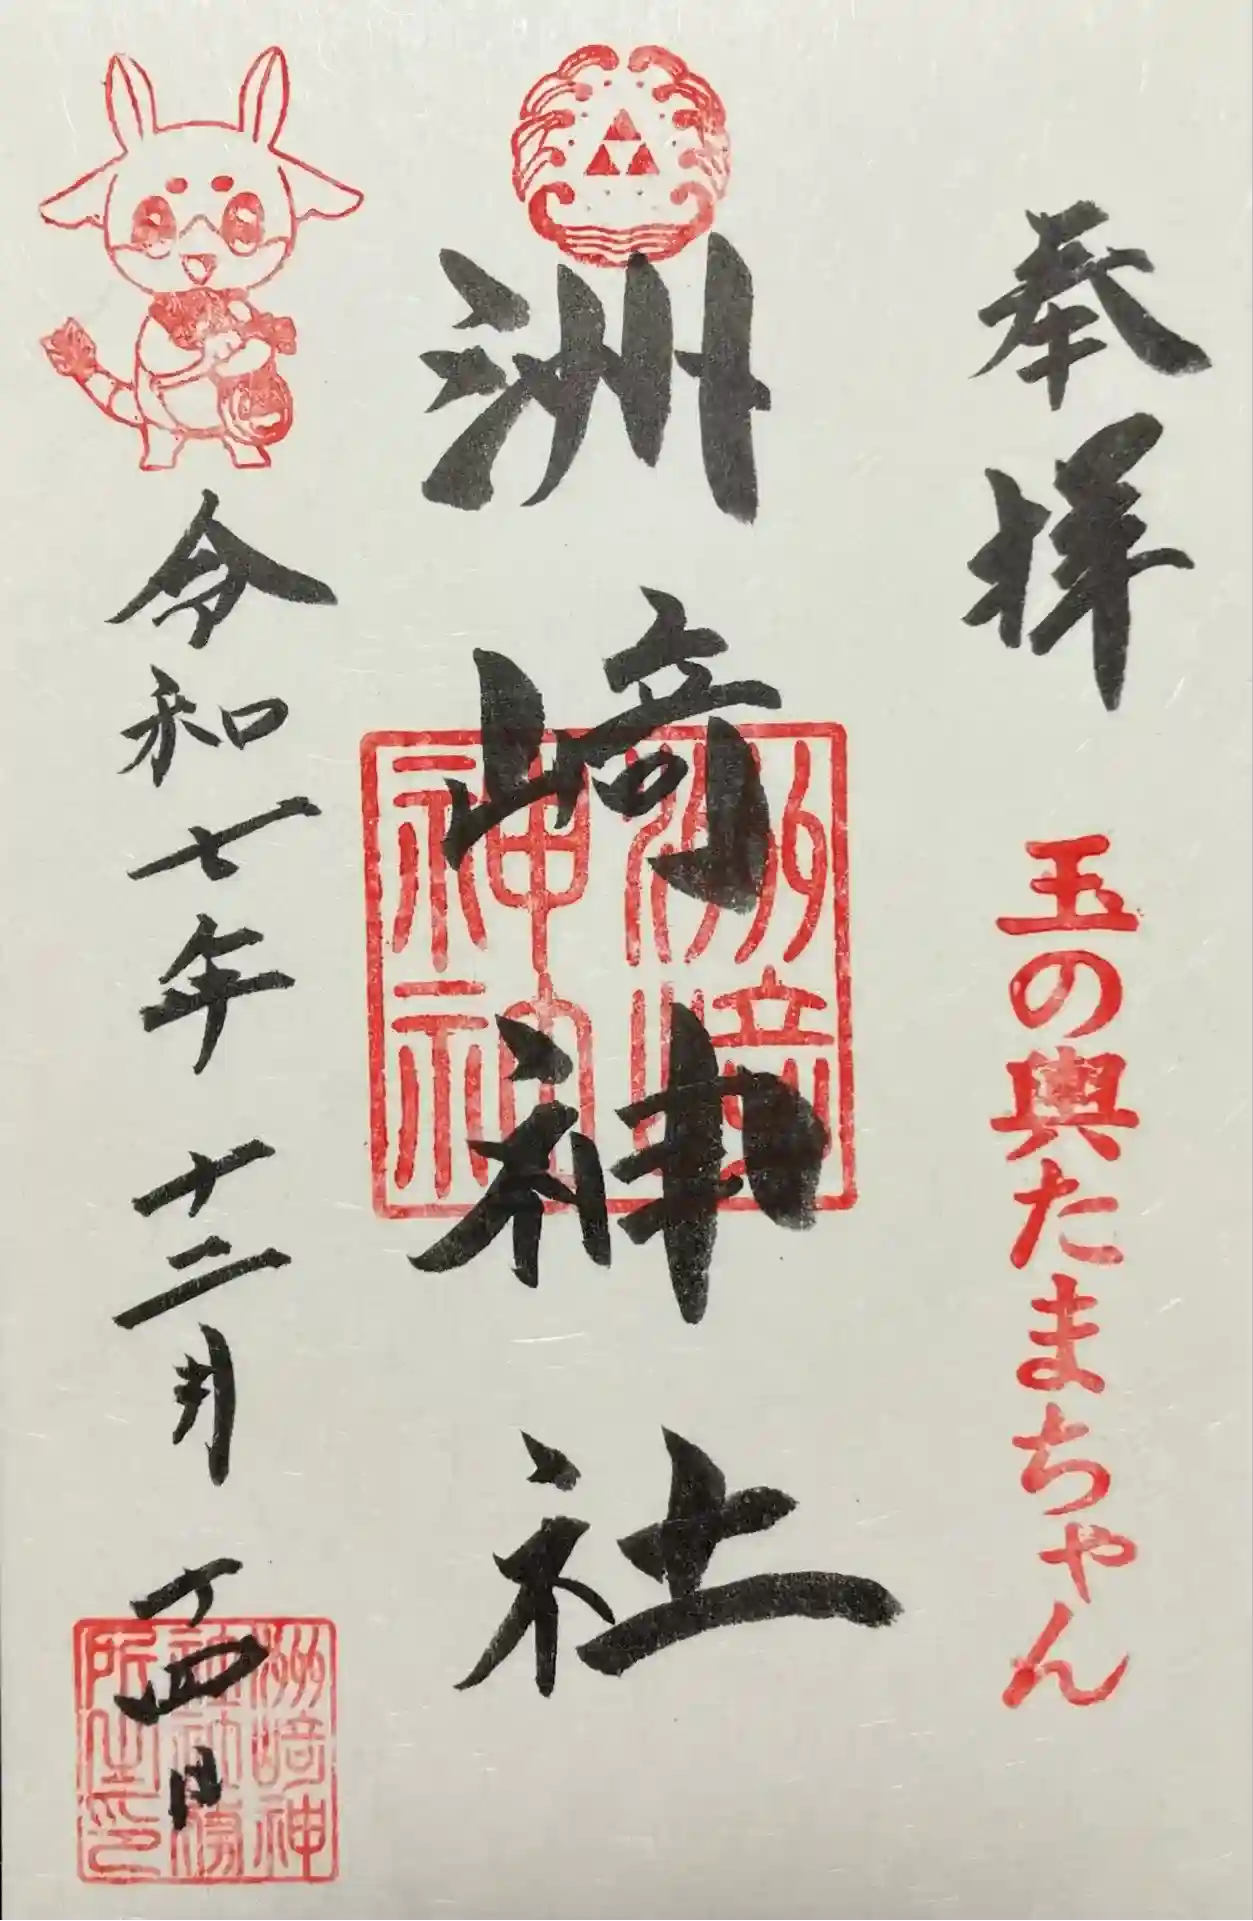 奉拝
玉の輿たまちゃん
洲崎神社
洲崎神社
令和七年十二月十四日
洲崎神
社社務
所之印